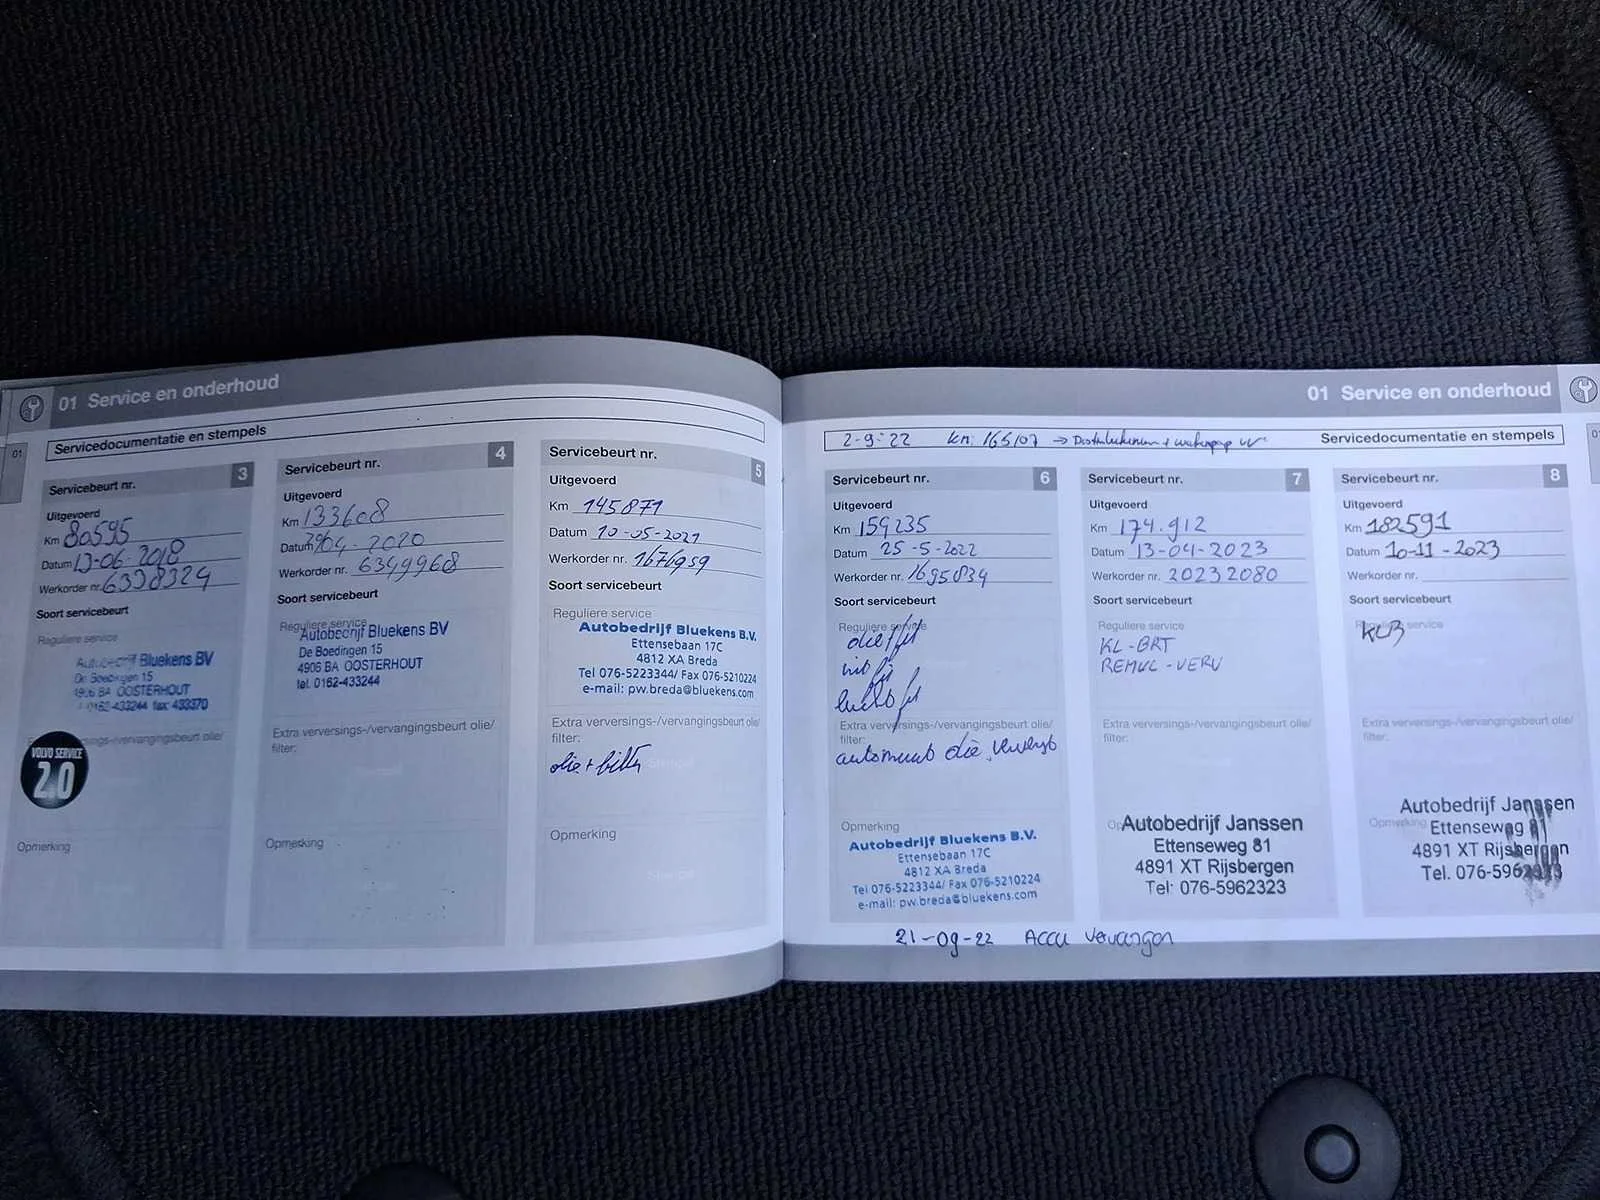 01 Service en onderhoud
01
Servicedocumentatie en stempels
Servicebeurt nr. 3
Uitgevoerd
Km 80595
Datum 13-06-2018
Werkorder nr. 6338324
Soort servicebeurt
Reguliere service
Autobedrijf Bluekens BV
De Boedingen 15
4906 BA OOSTERHOUT
0162-433244 fax: 433370
VOLVO SERVICE
2.0
Opmerking
Servicebeurt nr. 4
Uitgevoerd
Km 133608
Datum 04-2020
Werkorder nr. 6349968
Soort servicebeurt
Reguliere service
Autobedrijf Bluekens BV
De Boedingen 15
4906 BA OOSTERHOUT
tel. 0162-433244
Extra verversings-/vervangingsbeurt olie/
filter:
Opmerking
Servicebeurt nr. 5
Uitgevoerd
Km 145871
Datum 10-05-2021
Werkorder nr. 1671959
Soort servicebeurt
Reguliere service
Autobedrijf Bluekens B.V.
Ettensebaan 17C
4812 XA Breda
Tel 076-5223344/ Fax 076-5210224
e-mail: pw.breda@bluekens.com
Extra verversings-/vervangingsbeurt olie/
filter:
olie + filter
Opmerking
01 Service en onderhoud
2-9-'22 km: 165107 → Distributieriem + waterpomp vv
Servicedocumentatie en stempels
Servicebeurt nr. 6
Uitgevoerd
Km 159235
Datum 25-5-2022
Werkorder nr. 1695834
Soort servicebeurt
Reguliere service
olie fil
int fil
lucht fil
Extra verversings-/vervangingsbeurt olie/
filter:
automaat olie ververst
Opmerking
Autobedrijf Bluekens B.V.
Ettensebaan 17C
4812 XA Breda
Tel 076-5223344/ Fax 076-5210224
e-mail: pw.breda@bluekens.com
21-09-22 Accu vervangen
Servicebeurt nr. 7
Uitgevoerd
Km 174.912
Datum 13-04-2023
Werkorder nr. 20232080
Soort servicebeurt
Reguliere service
KL-BRT
REMVL-VERV
Extra verversings-/vervangingsbeurt olie/
filter:
Autobedrijf Janssen
Ettenseweg 81
4891 XT Rijsbergen
Tel: 076-5962323
Servicebeurt nr. 8
Uitgevoerd
Km 182591
Datum 10-11-2023
Werkorder nr.
Soort servicebeurt
Reguliere service
KLB
Extra verversings-/vervangingsbeurt olie/
filter:
Opmerking
Autobedrijf Janssen
Ettenseweg 81
4891 XT Rijsbergen
Tel. 076-5962323